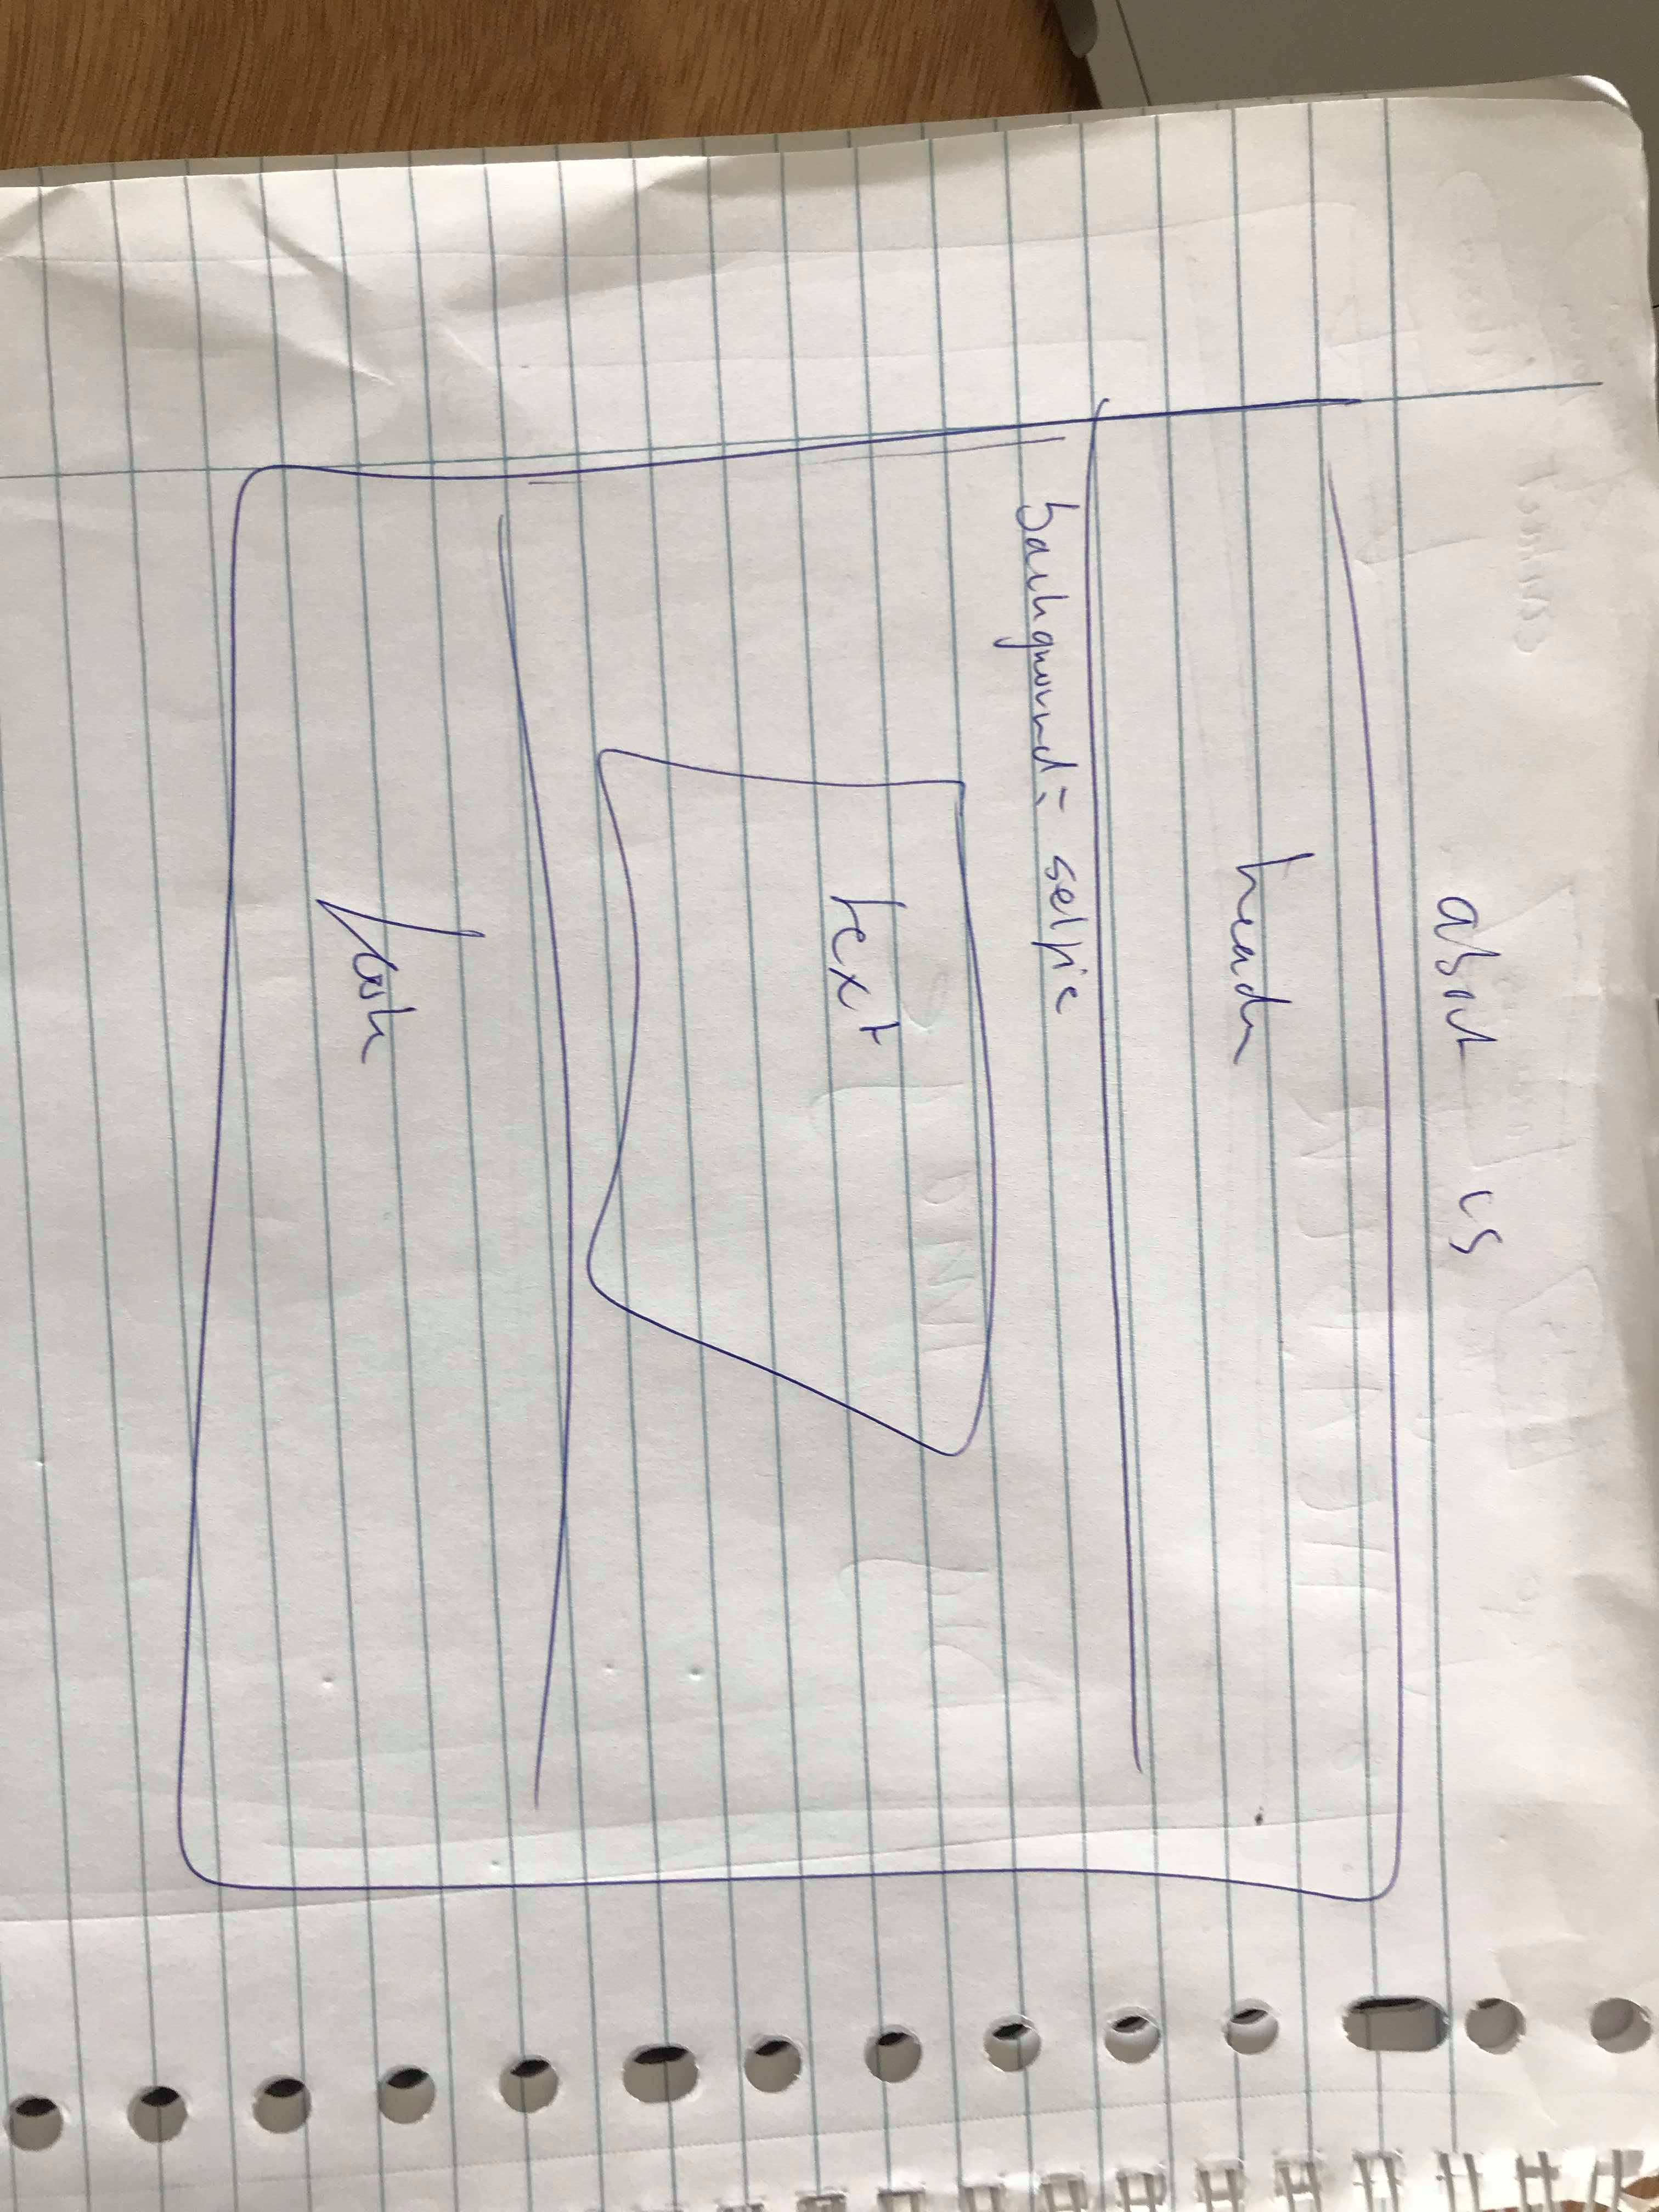 about us
header
background = selfie
text
footer